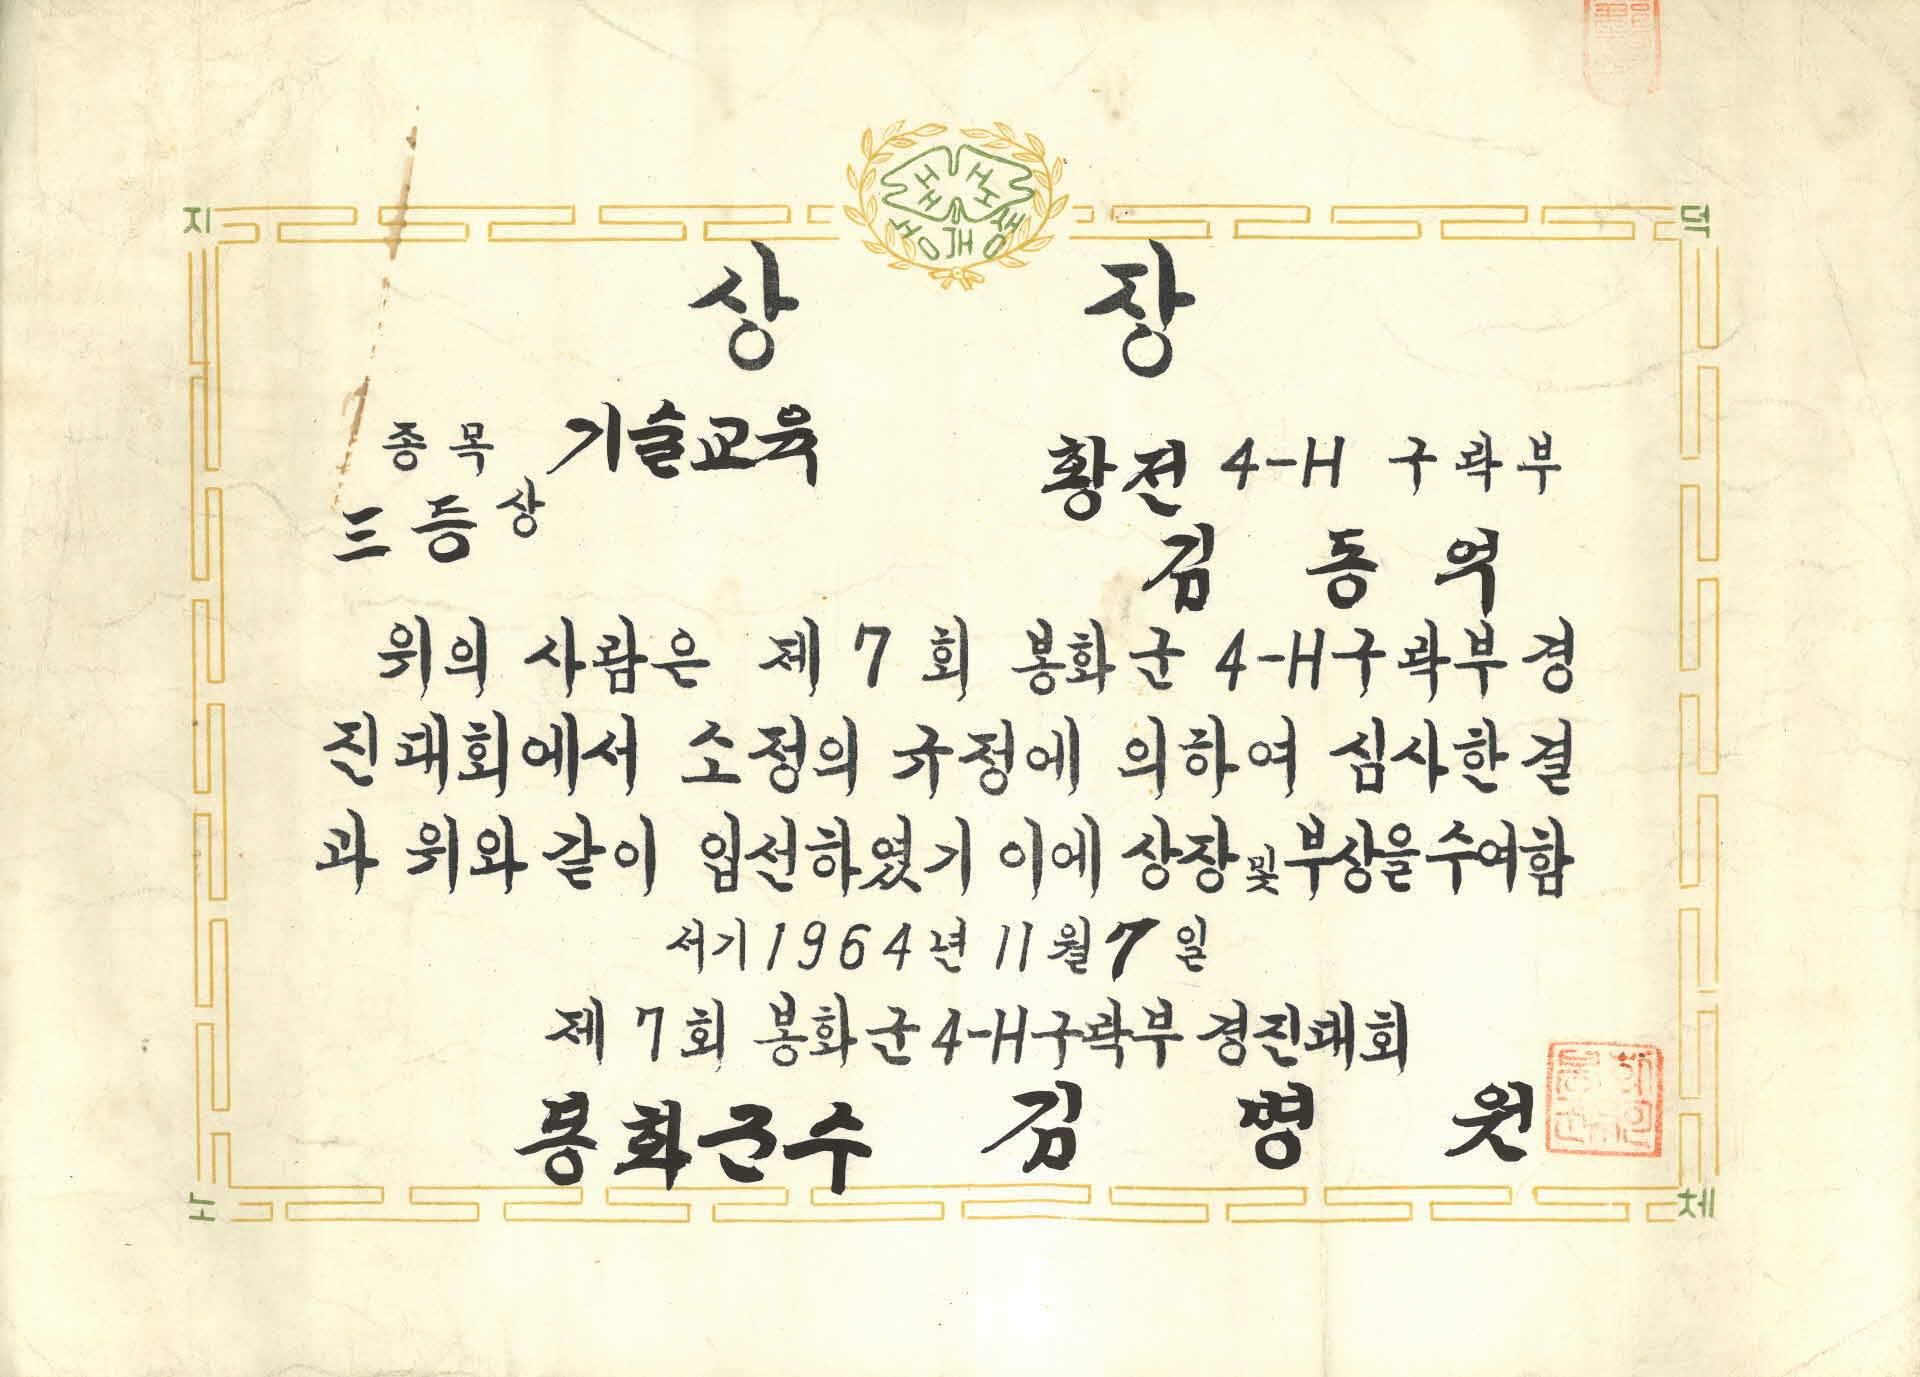 지 덕
H H H H
상 장
종목 기술교육
황전 4-H 구락부
三등상
김 동 억
위의 사람은 제 7 회 봉화군 4-H구락부 경
진대회에서 소정의 규정에 의하여 심사한 결
과 위와 같이 입선하였기 이에 상장 및 부상을 수여함
서기 1964년 11월 7일
제 7회 봉화군 4-H구락부 경진대회
봉화군수 김 병 원
노 체